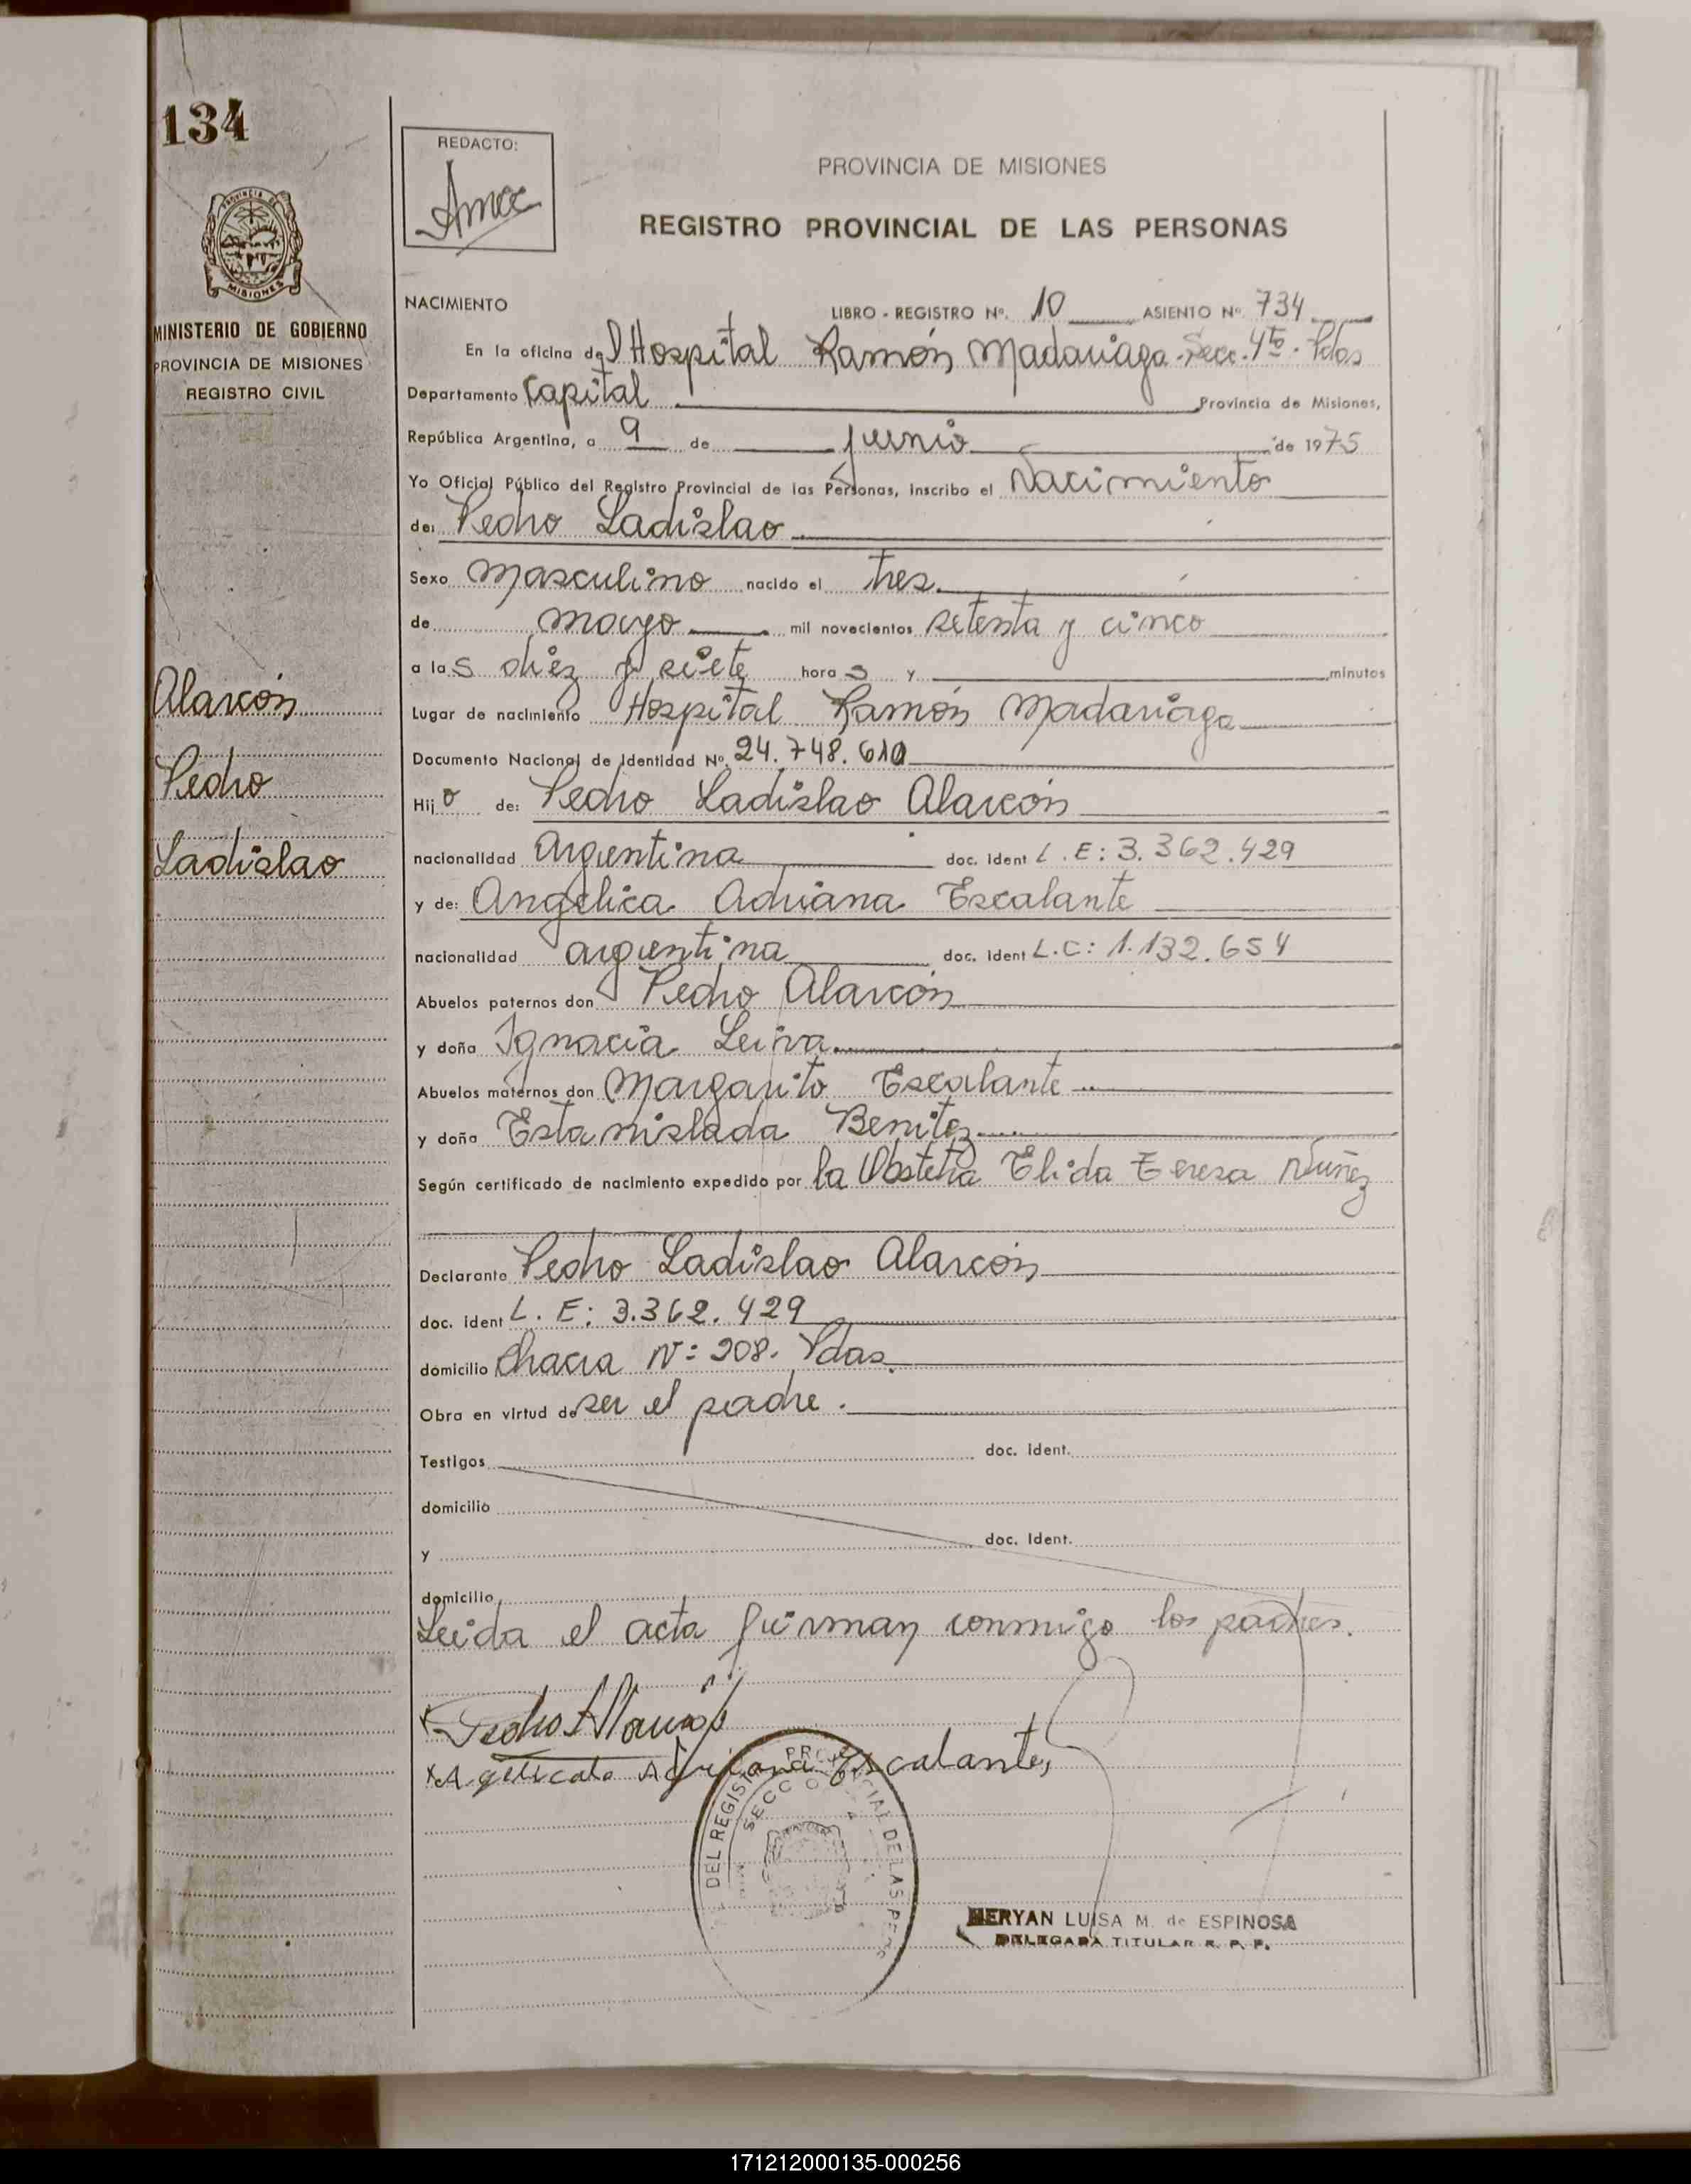 134
REDACTO:
PROVINCIA DE MISIONES
REGISTRO PROVINCIAL DE LAS PERSONAS
MISIONES
MINISTERIO DE GOBIERNO
PROVINCIA DE MISIONES
REGISTRO CIVIL
NACIMIENTO LIBRO - REGISTRO Nº. 10 ASIENTO Nº. 734
En la oficina del Hospital Ramón Madariaga - Secc. 4ta - Pdas
Departamento Capital Provincia de Misiones,
República Argentina, a 9 de junio de 1975
Yo Oficial Público del Registro Provincial de las Personas, inscribo el Nacimiento
de: Pedro Ladislao
Sexo Masculino nacido el tres
de mayo mil novecientos setenta y cinco
a las diez y siete horas y minutos
Lugar de nacimiento Hospital Ramón Madariaga
Documento Nacional de Identidad Nº. 24.748.610
Hijo de: Pedro Ladislao Alarcón
nacionalidad argentina doc. ident L.E: 3.362.429
y de: Angelica Adriana Escalante
nacionalidad argentina doc. ident L.C: 1.132.654
Abuelos paternos don Pedro Alarcón
y doña Ignacia Leiva
Abuelos maternos don Margarito Escalante
y doña Estanislada Benitez
Según certificado de nacimiento expedido por la Obstetra Elida Teresa Nuñez
Declarante Pedro Ladislao Alarcón
doc. ident L.E: 3.362.429
domicilio Chacra Nº: 208. Pdas.
Obra en virtud de ser el padre.
Testigos doc. ident.
domicilio
y doc. ident.
domicilio
Leida el acta firman conmigo los padres.
Alarcón
Pedro
Ladislao
Pedro Alarcón
Adriana Escalante
DEL REGISTRO PROVINCIAL DE LAS PERS
SECC
MERYAN LUISA M. de ESPINOSA
DELEGADA TITULAR R. P. P.
171212000135-000256